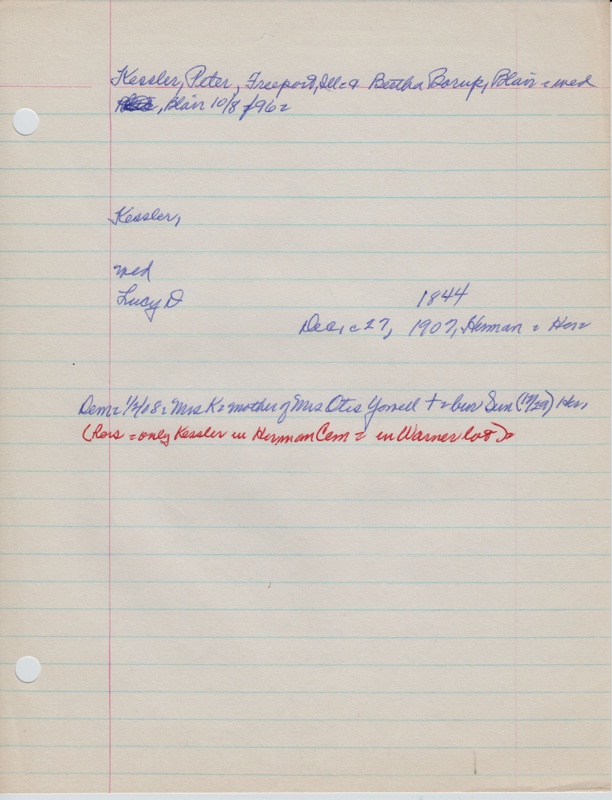 Kessler, Peter, Freeport, Ill. & Bertha Borup, Blair = wed
, Blair 10/8/1962
Kessler,
wed
Lucy D 1844
Dec. 27, 1907, Herman = Her=
Dem= 1/2/08= Mrs K= mother of Mrs Otis Yowell + = bur Sun (12/29) Her,
(Hers = only Kessler in Herman Cem = in Warner lot)=